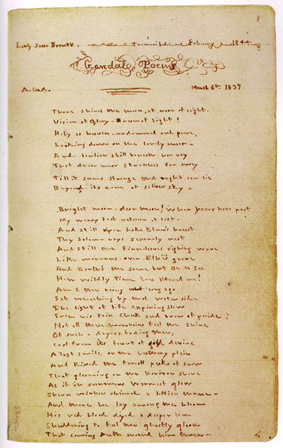 Emily Jane Brontë. Transcribed February 1844
Gondal Poems
A. G. A. March 6th 1837
There shines the moon, at noon of night.
Vision of Glory - Dream of light!
Holy as heaven - undimmed and pure,
Looking down on the lonely moor -
And lonelier still beneath her ray
That drear moor stretches far away
Till it seems strange that aught can lie
Beyond its zone of silver sky -
Bright moon - dear moon! when years have past
My weary feet return at last -
And still upon Lake Elnor's breast
Thy solemn rays serenely rest
And still the Fern-leaves sighing wave
Like mourners over Elbë's grave
And Earth's the same but Oh to see
How wildly Time has altered me!
Am I the being who long ago
Sat watching by that water side
The light of life expiring slow
From his fair cheek and brow of pride?
Not oft these mountains feel the shine
Of such a day - as fading then,
Cast from its fount of gold divine
A last smile on the heathery plain
And kissed the far-off peaks of snow
That gleaming on the horizon shone
As if in summer's warmest glow
Stern winter claimed a loftier throne -
And there he lay among the bloom
His red blood dyed a deeper hue
Shuddering to feel the ghastly gloom
That coming Death around him threw -